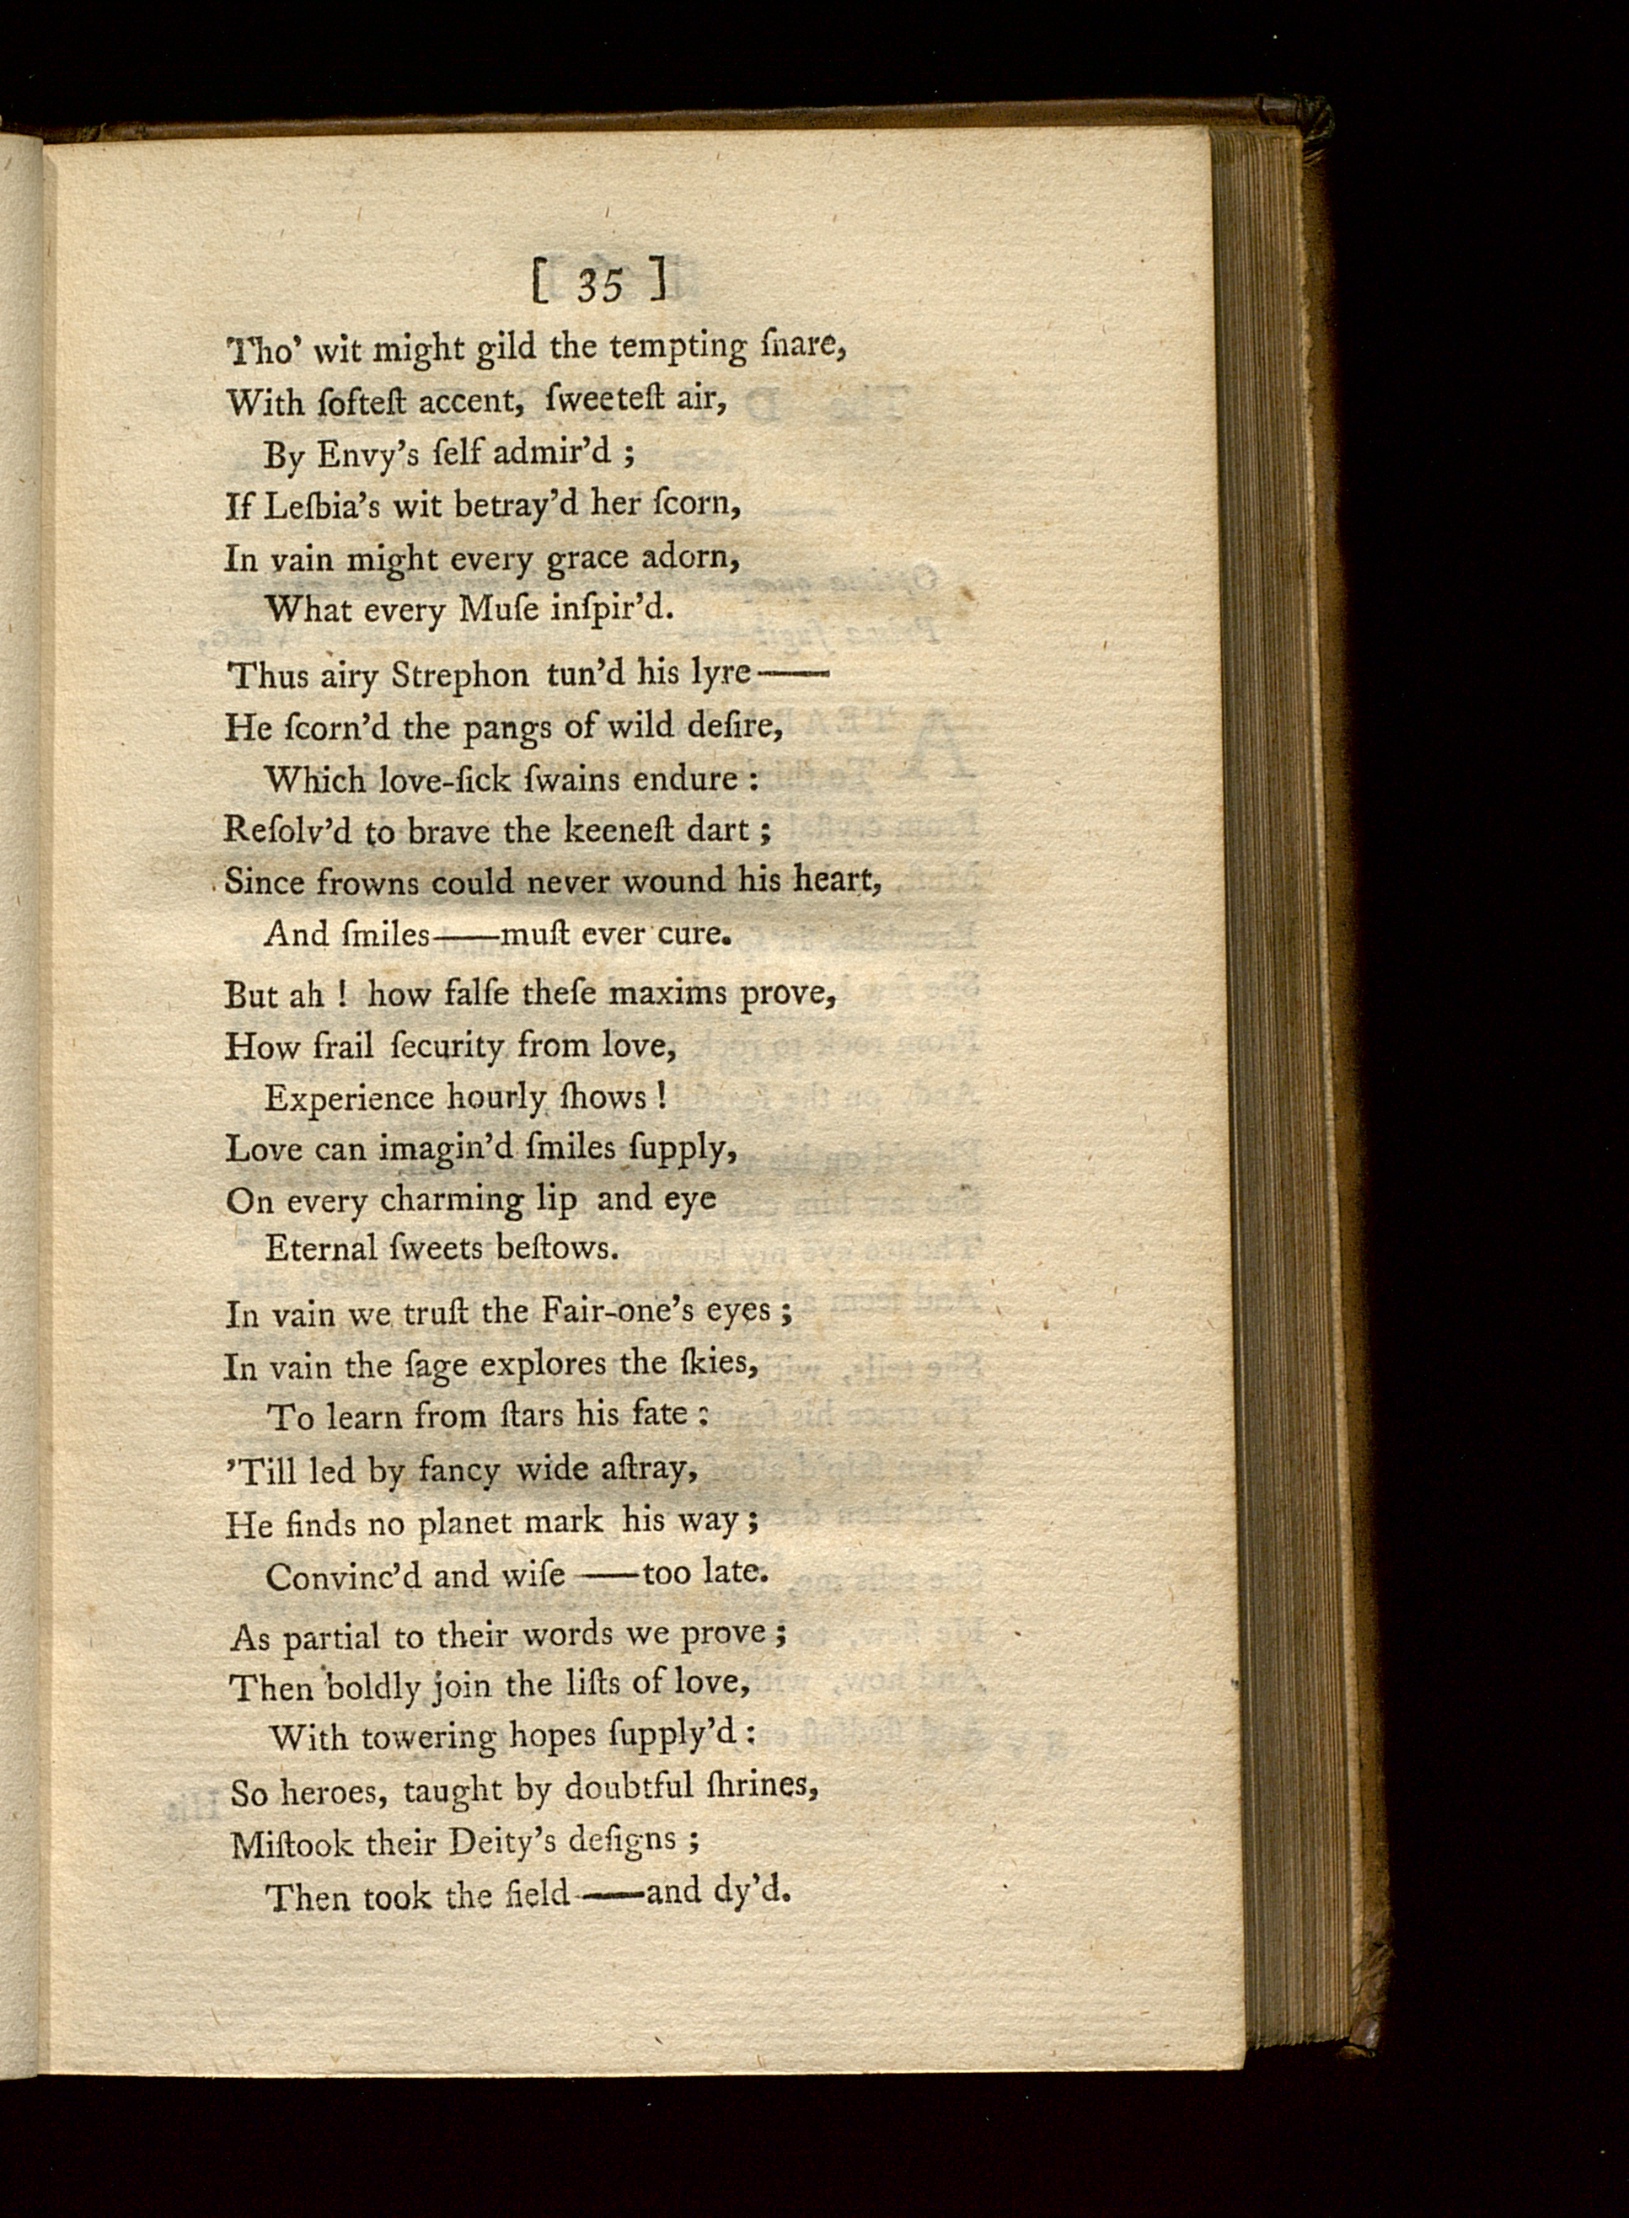 [ 35 ]
Tho' wit might gild the tempting ſnare,
With ſofteſt accent, ſweeteſt air,
By Envy's ſelf admir'd ;
If Leſbia's wit betray'd her ſcorn,
In vain might every grace adorn,
What every Muſe inſpir'd.
Thus airy Strephon tun'd his lyre——
He ſcorn'd the pangs of wild deſire,
Which love-ſick ſwains endure :
Reſolv'd to brave the keeneſt dart ;
Since frowns could never wound his heart,
And ſmiles——muſt ever cure.
But ah ! how falſe theſe maxims prove,
How frail ſecurity from love,
Experience hourly ſhows !
Love can imagin'd ſmiles ſupply,
On every charming lip and eye
Eternal ſweets beſtows.
In vain we truſt the Fair-one's eyes ;
In vain the ſage explores the ſkies,
To learn from ſtars his fate :
'Till led by fancy wide aſtray,
He finds no planet mark his way ;
Convinc'd and wiſe ——too late.
As partial to their words we prove ;
Then boldly join the liſts of love,
With towering hopes ſupply'd :
So heroes, taught by doubtful ſhrines,
Miſtook their Deity's deſigns ;
Then took the field——and dy'd.